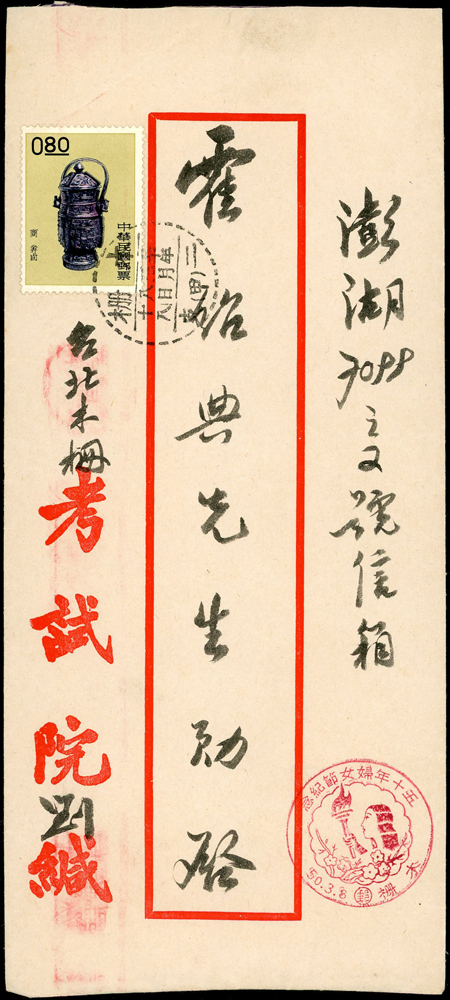 澎湖7088之 號信箱
霍紹典先生勛啓
台北木柵
考試院
劉
緘
080
中華民國郵票
商
卣
柵
五十年婦女節紀念
50.3.8
郵
木柵